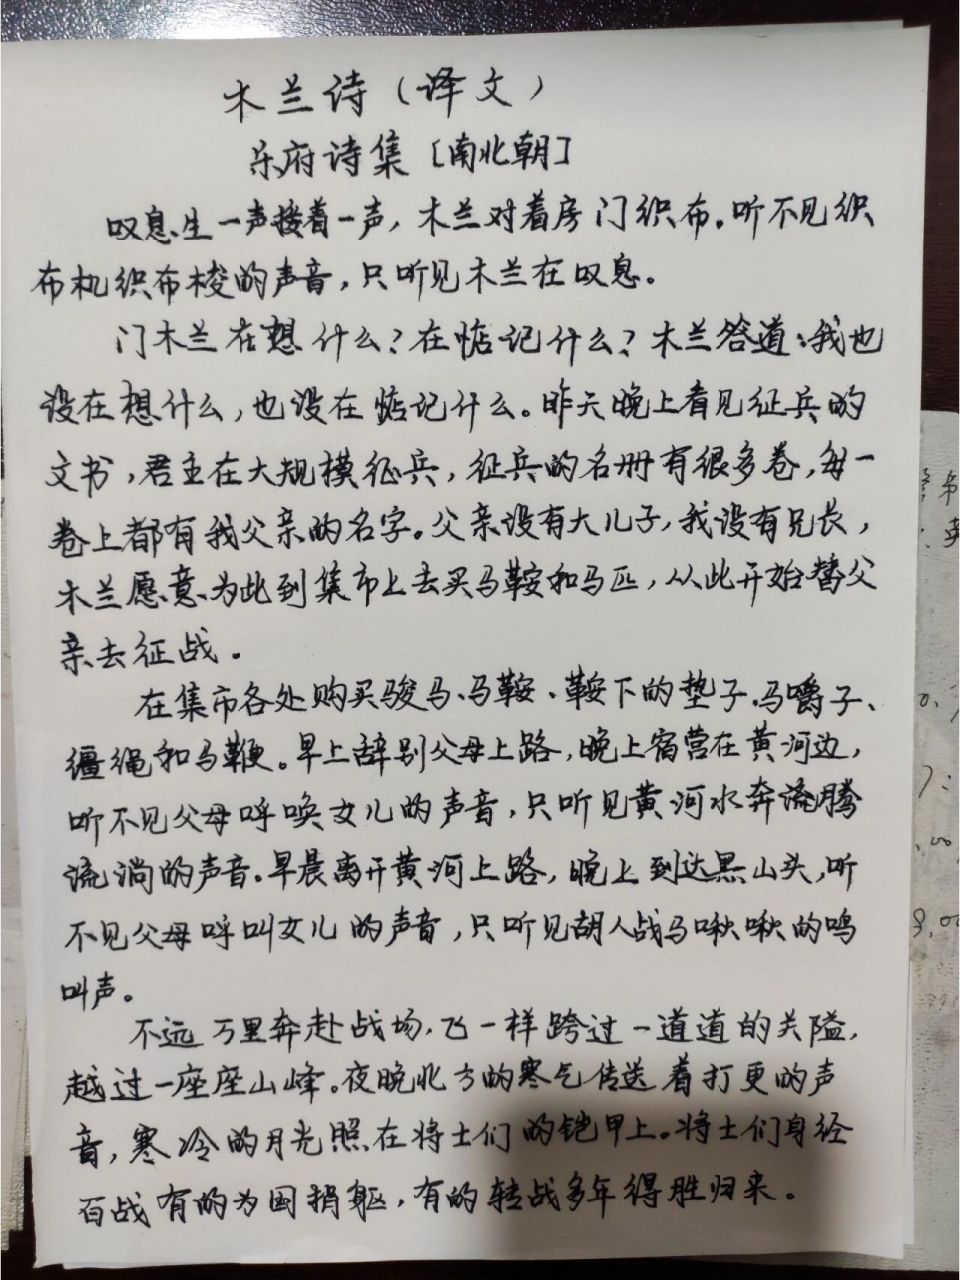 木兰诗（译文）
乐府诗集［南北朝］
叹息生一声接着一声，木兰对着房门织布。听不见织
布机织布梭的声音，只听见木兰在叹息。
门木兰在想什么？在惦记什么？木兰答道：我也
没在想什么，也没在惦记什么。昨天晚上看见征兵的
文书，君主在大规模征兵，征兵的名册有很多卷，每一
卷上都有我父亲的名字。父亲没有大儿子，我没有兄长，
木兰愿意为此到集市上去买马鞍和马匹，从此开始替父
亲去征战。
在集市各处购买骏马、马鞍、鞍下的垫子、马嚼子、
缰绳和马鞭。早上辞别父母上路，晚上宿营在黄河边，
听不见父母呼唤女儿的声音，只听见黄河水奔流腾
流淌的声音。早晨离开黄河上路，晚上到达黑山头，听
不见父母呼叫女儿的声音，只听见胡人战马啾啾的鸣
叫声。
不远万里奔赴战场，飞一样跨过一道道的关隘，
越过一座座山峰。夜晚北方的寒气传送着打更的声
音，寒冷的月光照在将士们的铠甲上。将士们身经
百战有的为国捐躯，有的转战多年得胜归来。